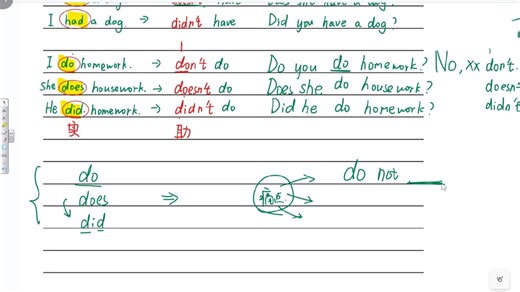 I had a dog. → didn't have Did you have a dog?
I do homework. → don't do Do you do homework? No, xx don't.
She does housework. → doesn't do Does she do housework? doesn't
He did homework. → didn't do Did he do homework? didn't
实 助
do
does ⇒ do not
did